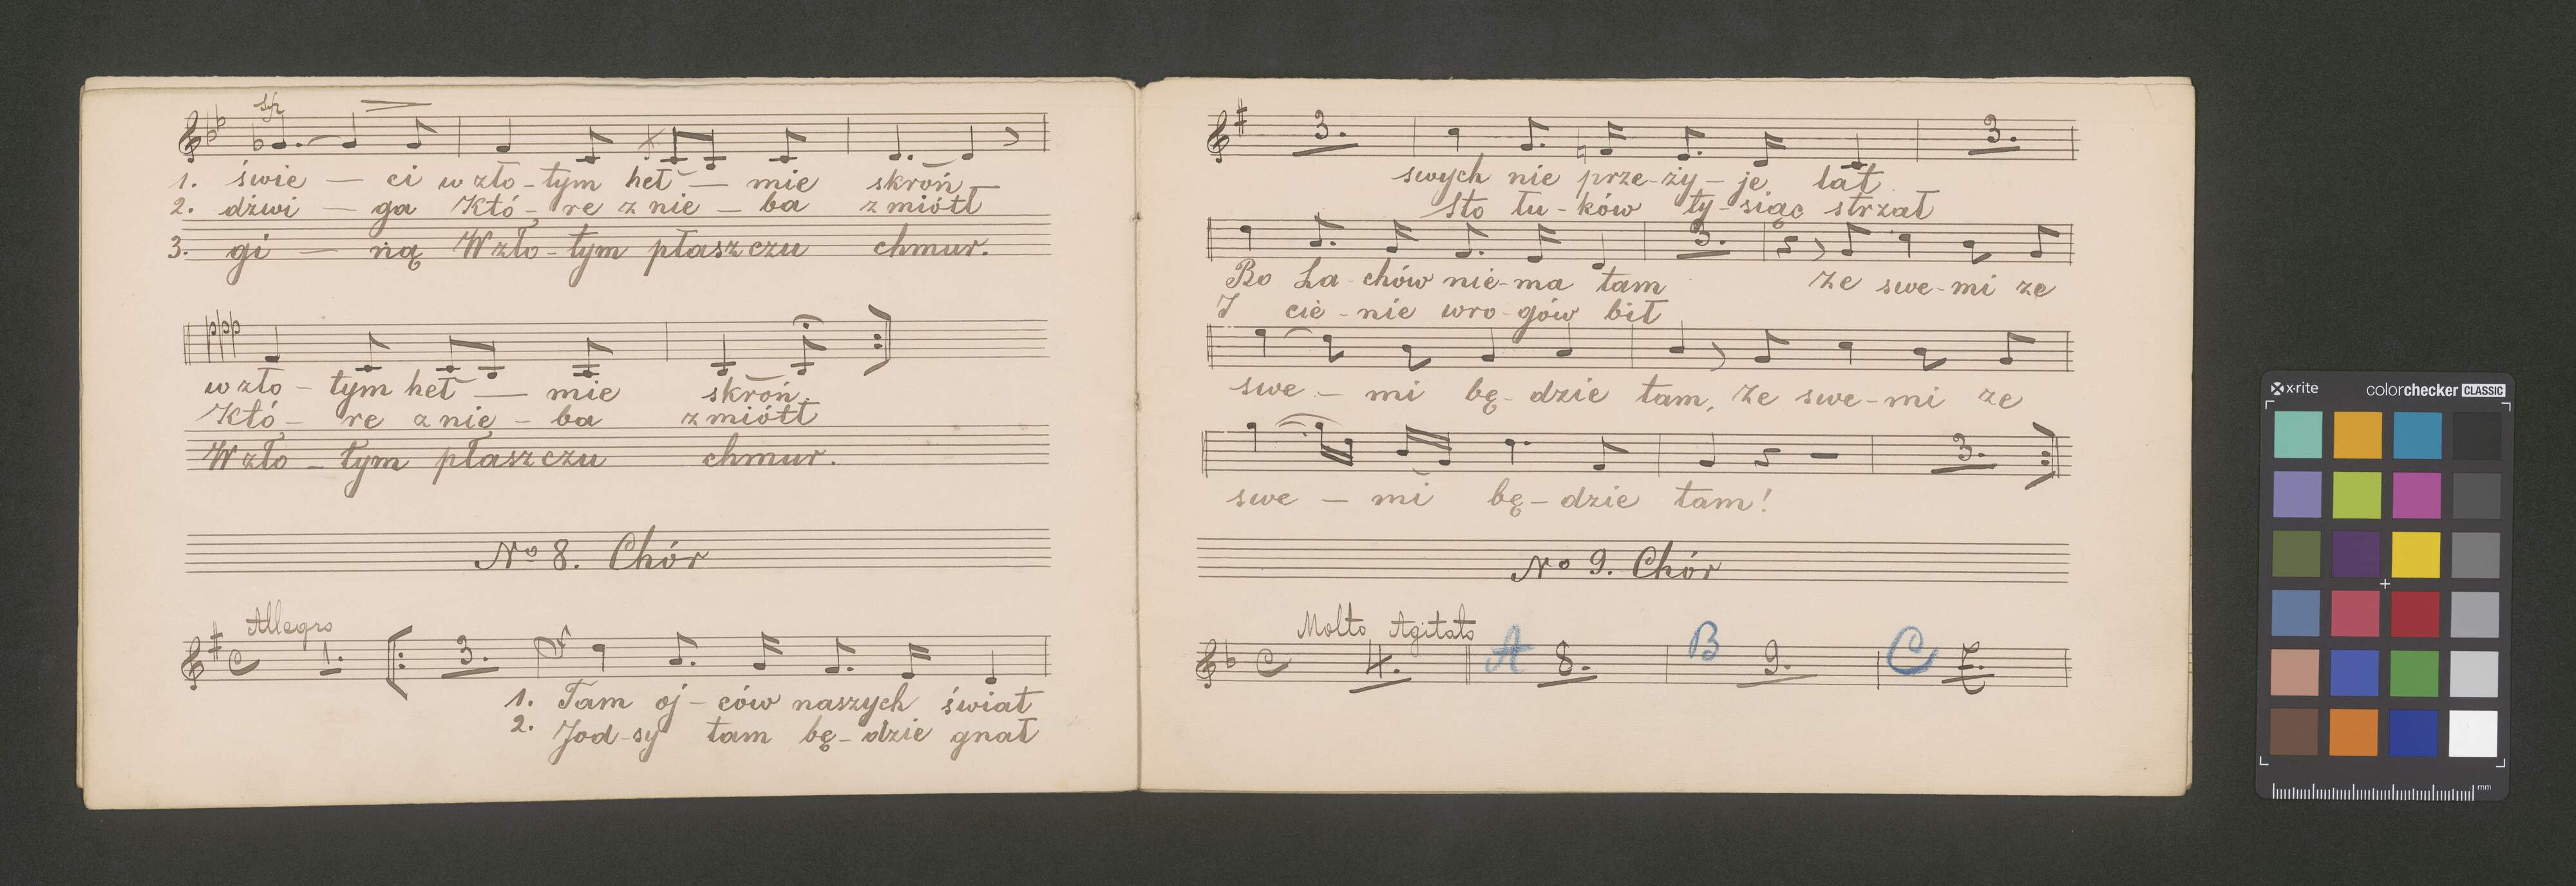 1. świe – ci w zło – tym heł – mie skroń –
2. dźwi – ga Któ – re z nie – ba zmiótł
3. gi – ną W zło – tym płaszczu chmur.
w zło – tym heł – mie skroń.
Któ – re z nie – ba zmiótł
W zło – tym płaszczu chmur.
No 8. Chór
Allegro
1. 3.
1. Tam oj – ców naszych świat
2. Jod – sy tam bę – dzie gnał
3. 3.
swych nie prze – ży – je lat
Sto łu – ków ty – siąc strzał
3.
Bo La – chów nie – ma tam Ze swe – mi ze
I cie – nie wro – gów bił
swe – mi bę – dzie tam, Ze swe – mi ze
3.
swe – mi bę – dzie tam!
No 9. Chór
Molto Agitato
4. A 8. B 9. C 7.
x-rite colorchecker CLASSIC
mm